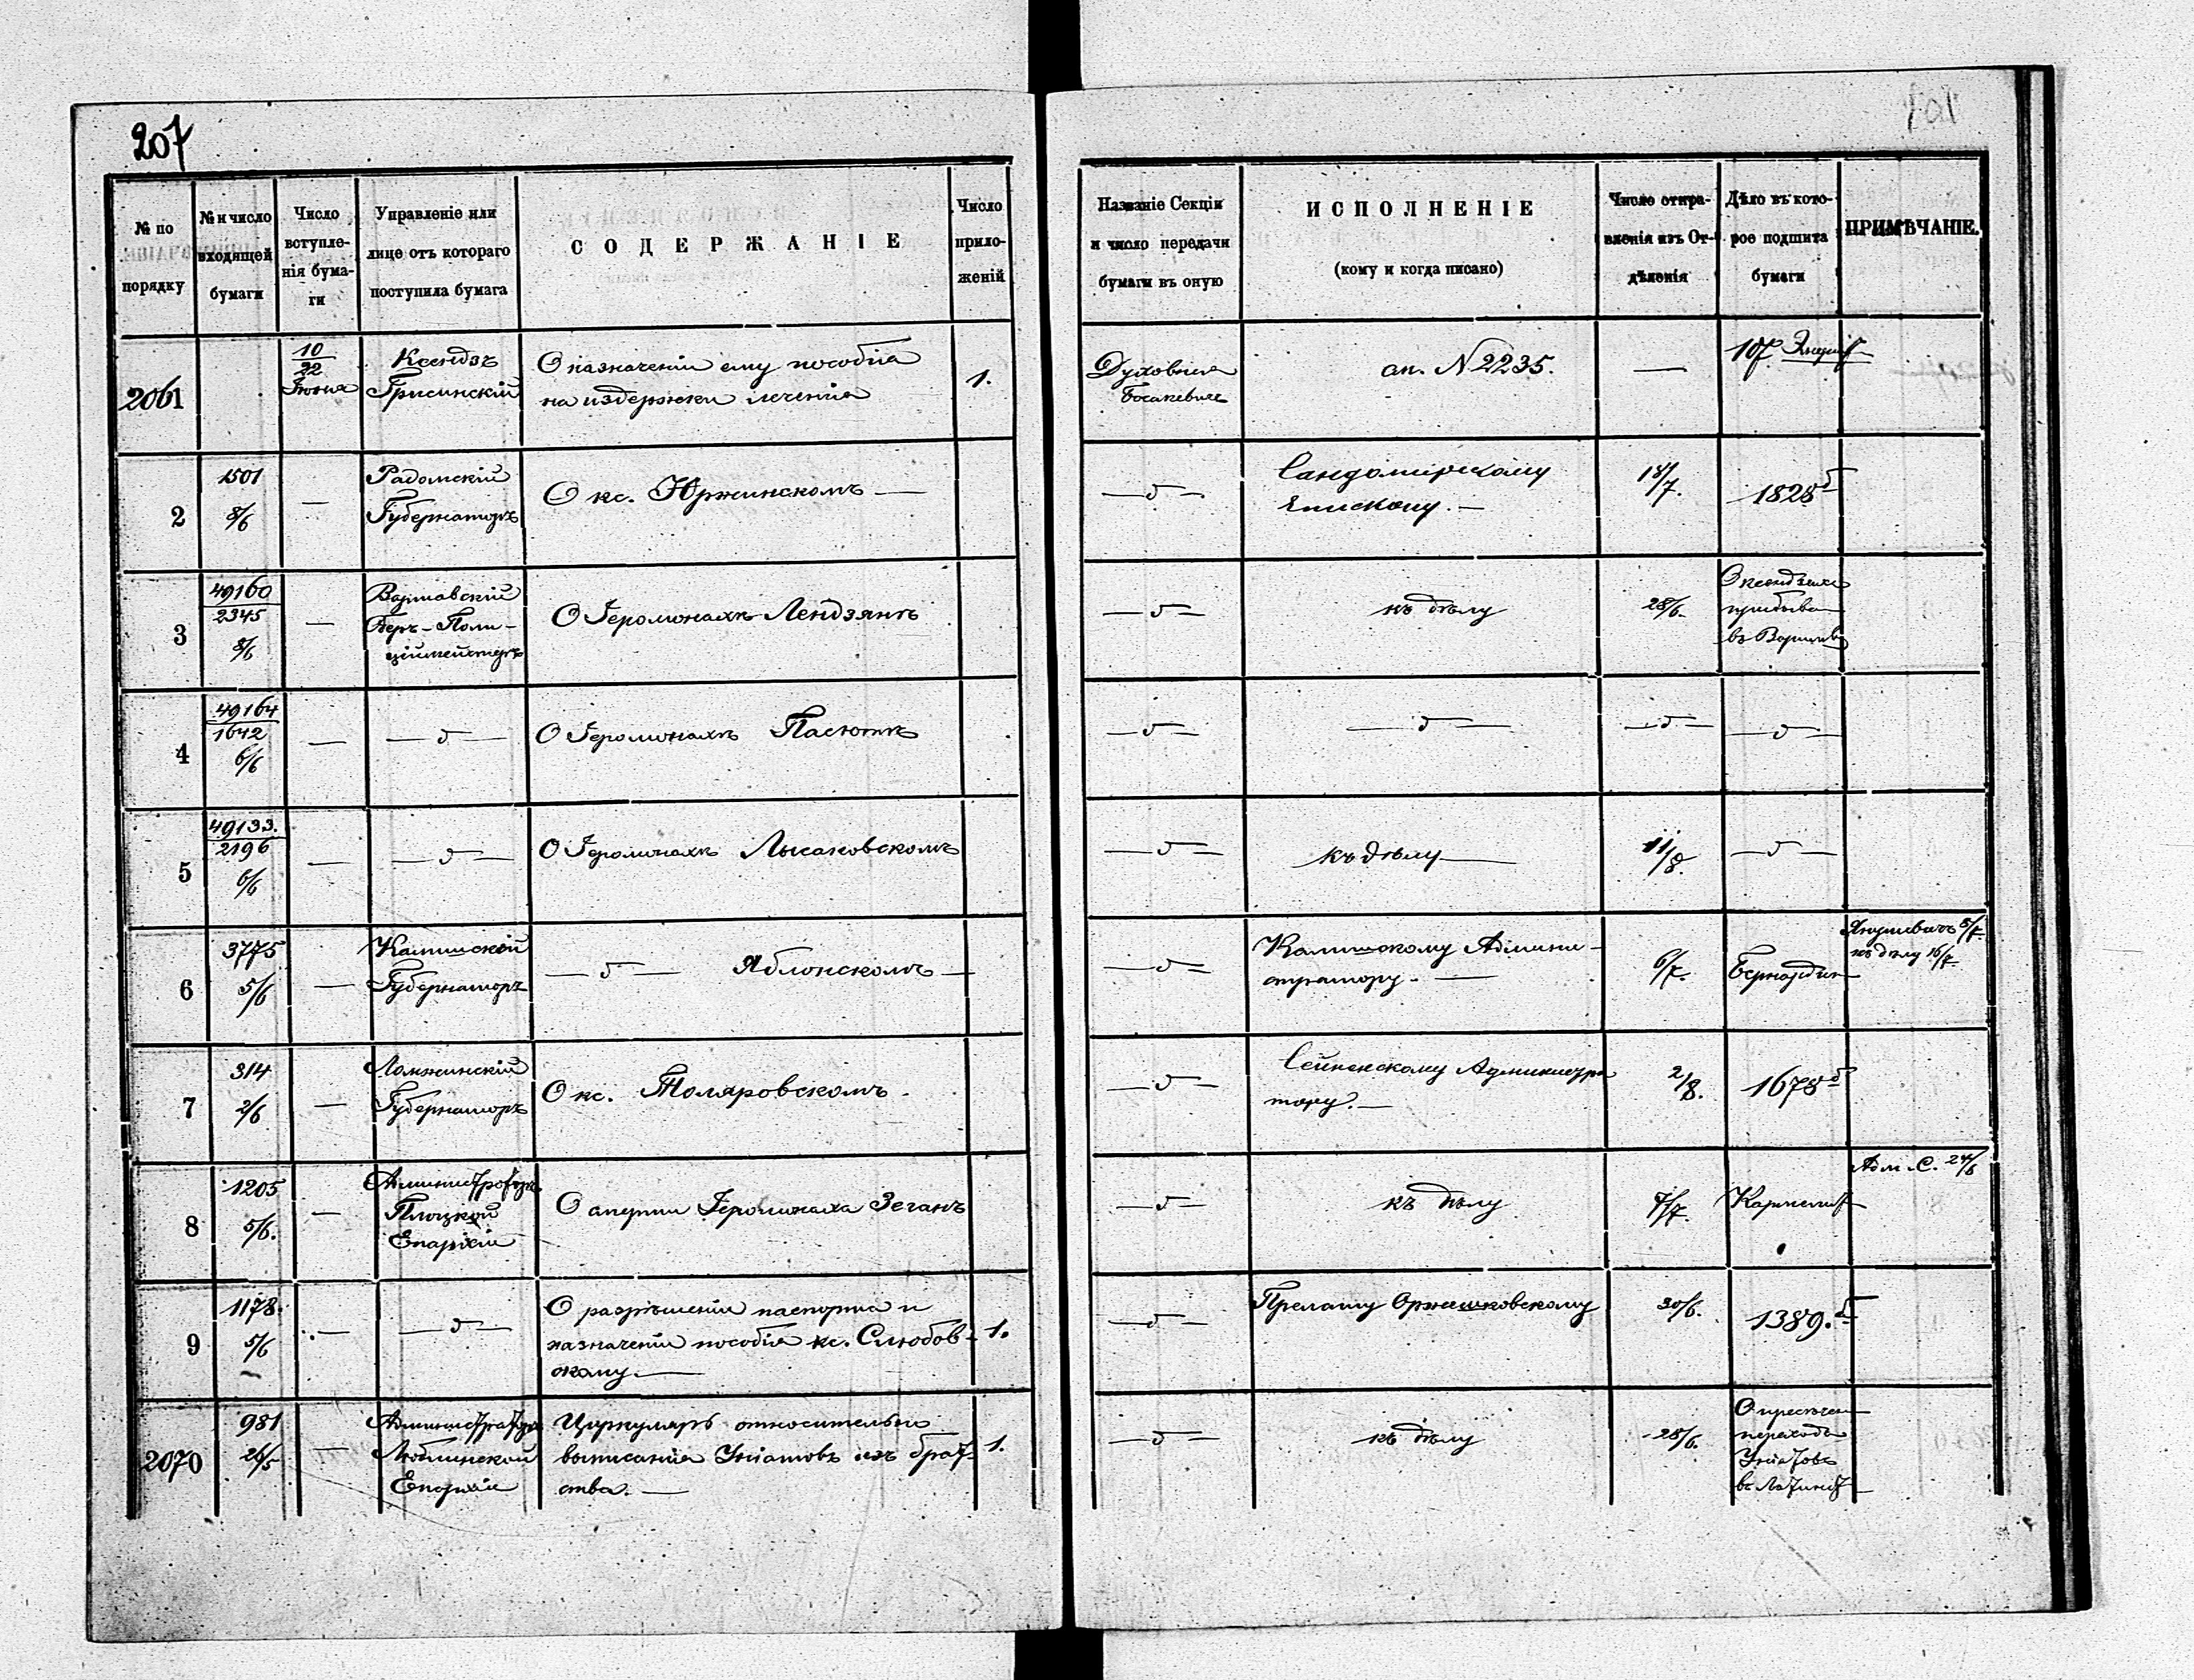 207
№ по
порядку
№ и число
входящей
бумаги
Число
вступле-
нія бума-
ги
Управленіе или
лице отъ котораго
поступила бумага
СОДЕРЖАНІЕ
Число
прило-
женій
Названіе Секціи
и число передачи
бумаги въ оную
ИСПОЛНЕНІЕ
(кому и когда писано)
Число отпра-
вленія изъ От-
дѣленія
Дѣло въ кото-
рое подшита
бумаги
ПРИМѢЧАНІЕ.
2061
10
22
Іюня
Ксендзъ
Грисинскій
О назначеніи ему пособія
на издержки леченія
1.
Духовная
ап. N 2235.
—
107
2
1501
8/6
—
Радомскій
Губернаторъ
О кс. Юржинскомъ —
— " —
Сандомирскому
Епископу. —
18/7.
1828
3
49160
2345
8/6
—
Варшавскій
Оберъ-Поли-
ціймейстеръ
О Іеромонахѣ Лендзянѣ
— " —
къ дѣлу
28/6.
О ксендзахъ
прибыв
въ Варшав
4
49164
1642
6/6
—
— " —
О Іеромонахѣ Пасютѣ
— " —
— " —
— " —
— " —
5
49133.
2196
6/6
—
— " —
О Іеромонахѣ Лысаковскомъ
— " —
къ дѣлу —
11/8.
— " —
6
3775
5/6
—
Калишскій
Губернаторъ
— " — Яблонскомъ —
— " —
Калишскому Админи-
стратору. —
6/7.
Бернардин
Янушевичъ 8/7.
къ дѣлу 16/7.
7
314
2/6
—
Ломжинскій
Губернаторъ
О кс. Толяровскомъ.
— " —
Сейненскому Администра
тору. —
2/8.
1678
8
1205
5/6.
—
Администраторъ
Плоцкой
Епархіи
О смерти Іеромонаха Зеганъ
— " —
къ дѣлу
7/7.
Кармелит
Адм. С. 24/6
9
1178.
5/6
—
— " —
О разрѣшеніи паспорта и
назначеніи пособія кс. Слюбов-
скому —
1.
— " —
Прелату Оржешковскому
30/6.
1389.
2070
981
26/5
—
Администраторъ
Люблинской
Епархіи
Циркуляръ относительно
выписанія Уніатовъ изъ брат-
ства. —
1.
— " —
къ дѣлу
28/6.
О пресѣчен
перехода
Уніатовъ
въ Латинст